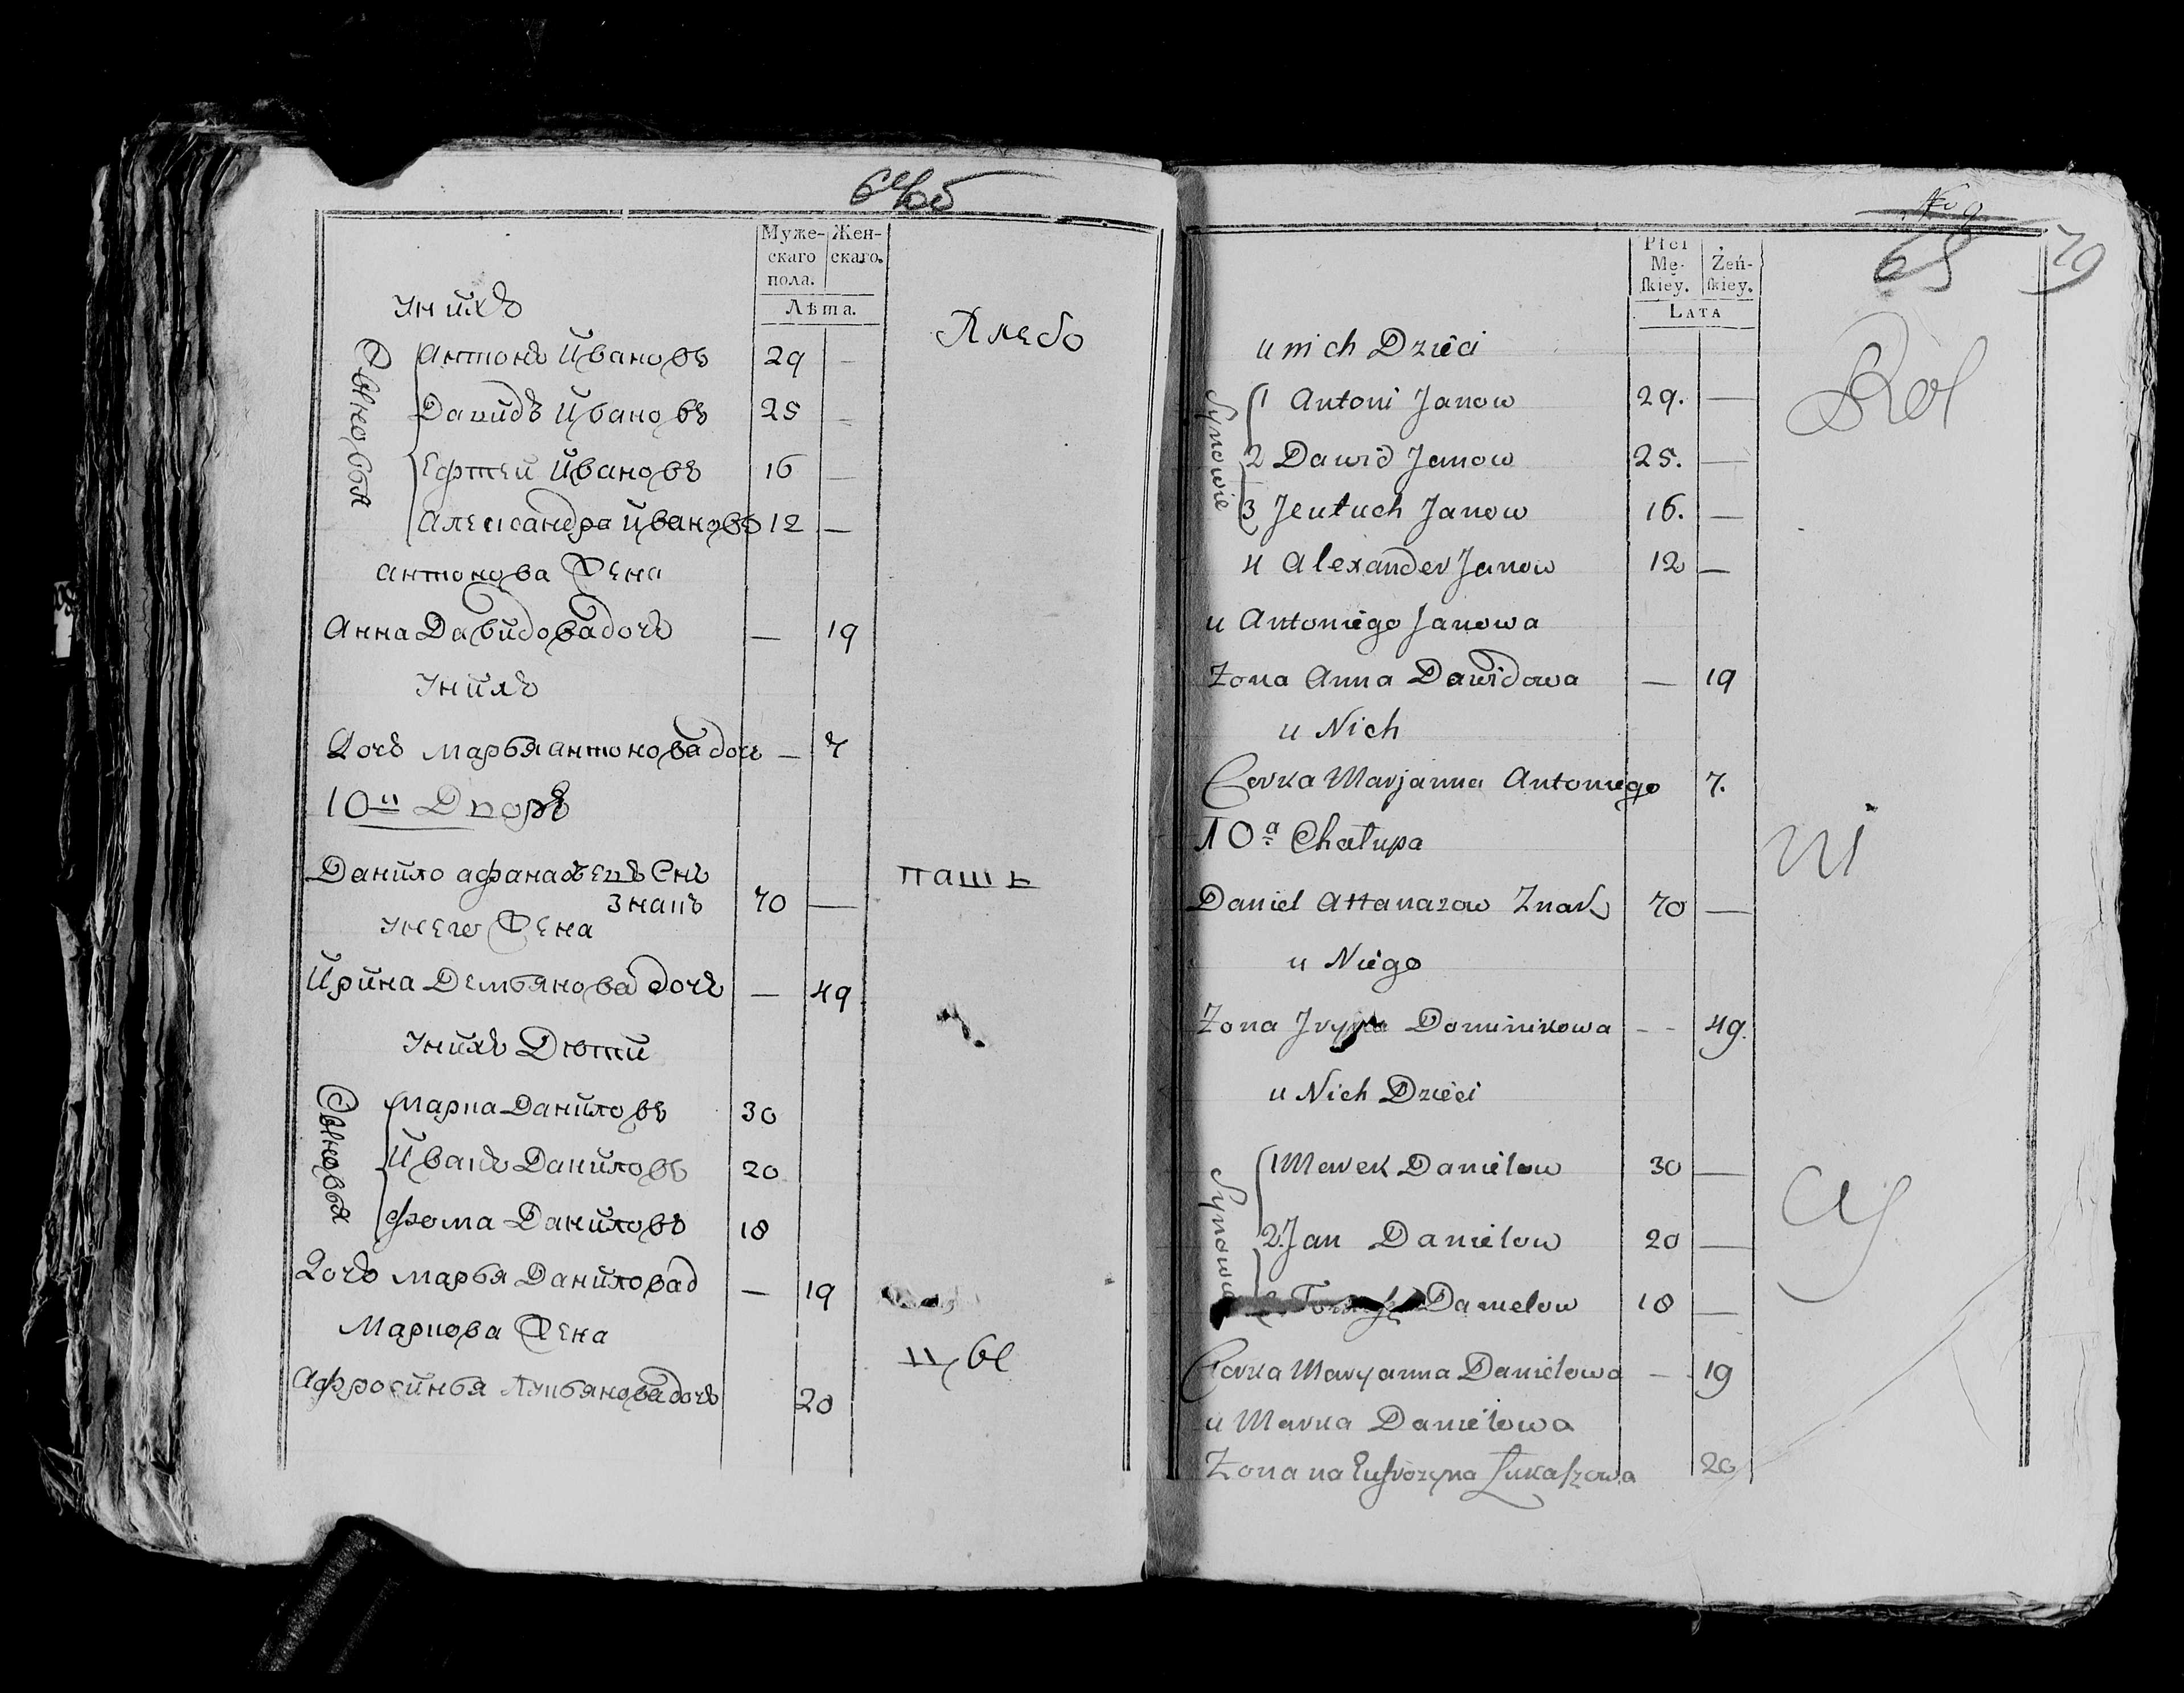 64об
Муже-
скаго
пола.
Жен-
скаго.
Лѣта.
Унихъ
Хлебо
Сыновья
Антонъ Ивановъ 29 —
Давидъ Ивановъ 25 —
Ефтей Ивановъ 16 —
Александра Ивановъ 12 —
Антонова Жена
Анна Давидова дочь — 19
Унихъ
Дочь Марья Антонова дочь — 7
10й Дворъ
Данило Афанасьевъ Снъ
Знакъ 70 —
пашъ
Унего Жена
Ирина Демьянова дочь — 49
Унихъ Дѣти
Сыновья
Марка Даниловъ 30
Иванъ Даниловъ 20
Фома Даниловъ 18
Дочь Марья Данилова д — 19
Маркова Жена
цы
Афросинья Лукьянова дочь 20
65
79
Płci
Mę-
ſkiey.
Żeń-
ſkiey.
Lata
Rol
u nich Dzieci
Synowie
1 Antoni Janow 29. —
2 Dawid Janow 25. —
3 Jeutuch Janow 16. —
4 Alexander Janow 12 —
u Antoniego Janowa
Zona Anna Dawidowa — 19
u Nich
Corka Marjanna Antoniego 7.
10a Chałupa
ni
Daniel Attanazow Znak 70 —
u Niego
Zona Dominikowa - - 49.
u Nich Dzieci
1 Marek Danielow 30 —
cy
2. Jan Danielow 20 —
Danielow 18 —
Corka Maryanna Danielowa — 19
u Marka Danielowa
Zona na Eufrozyna Łukaſzowa 20